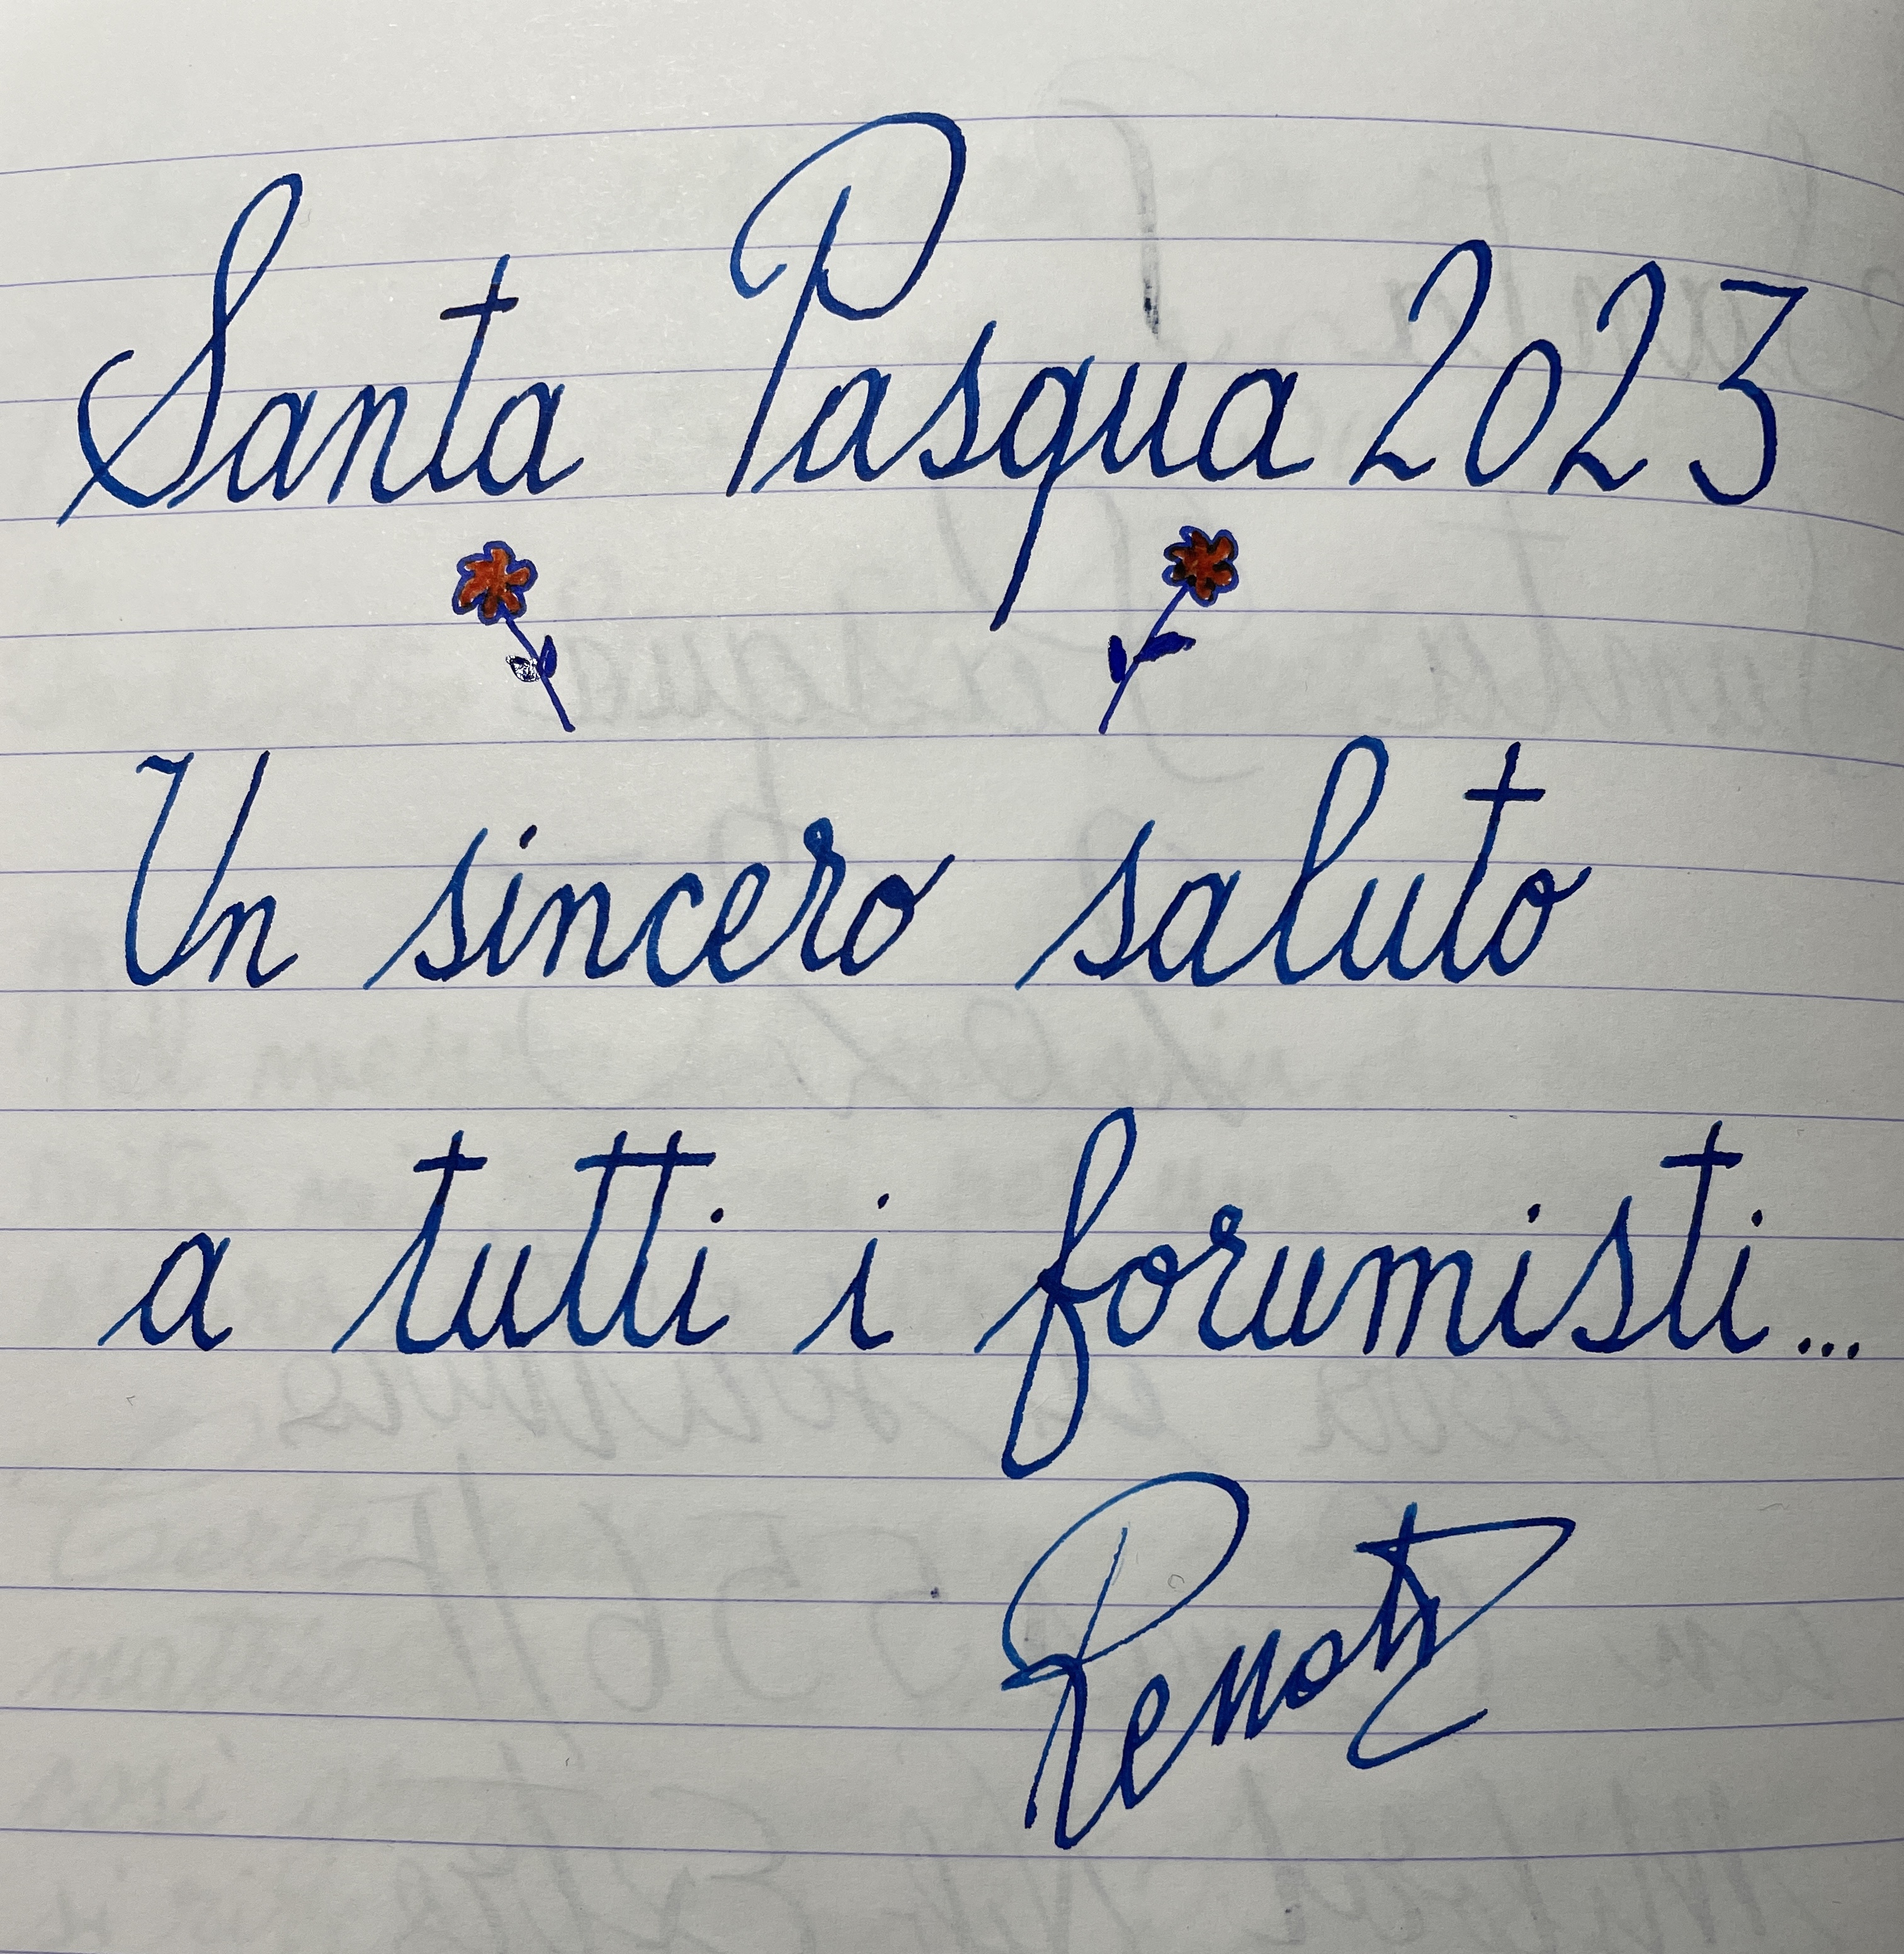 Santa Pasqua 2023
Un sincero saluto
a tutti i forumisti...
Renato